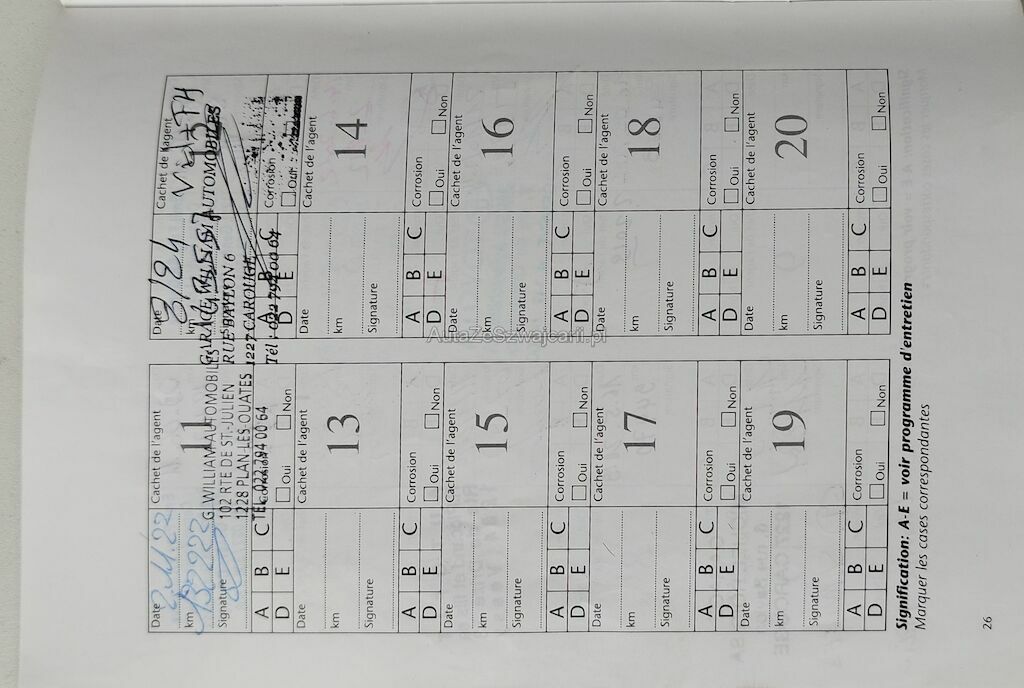 Date
Cachet de l'agent
km
11
Signature
G.WILLIAM AUTOMOBILES
102 RTE DE ST-JULIEN
1228 PLAN-LES-OUATES
TEL. 022 794 00 64
A B C Corrosion
D E Oui Non
Date 3/24
Cachet de l'agent
km
GARAGE WILLIAM AUTOMOBILES
RUE BAYLON 6
1227 CAROUGE
Tél : 022 794 00 64
A B C Corrosion
D E Oui
Date Cachet de l'agent
km 13
Signature
A B C Corrosion
D E Oui Non
Date Cachet de l'agent
km 14
Signature
A B C Corrosion
D E Oui Non
Date Cachet de l'agent
km 15
Signature
A B C Corrosion
D E Oui Non
Date Cachet de l'agent
km 16
Signature
A B C Corrosion
D E Oui Non
Date Cachet de l'agent
km 17
Signature
A B C Corrosion
D E Oui Non
Date Cachet de l'agent
km 18
Signature
A B C Corrosion
D E Oui Non
Date Cachet de l'agent
km 19
Signature
A B C Corrosion
D E Oui Non
Date Cachet de l'agent
km 20
Signature
A B C Corrosion
D E Oui Non
Signification: A-E = voir programme d'entretien
Marquer les cases correspondantes
26
AutaZeSzwajcarii.pl